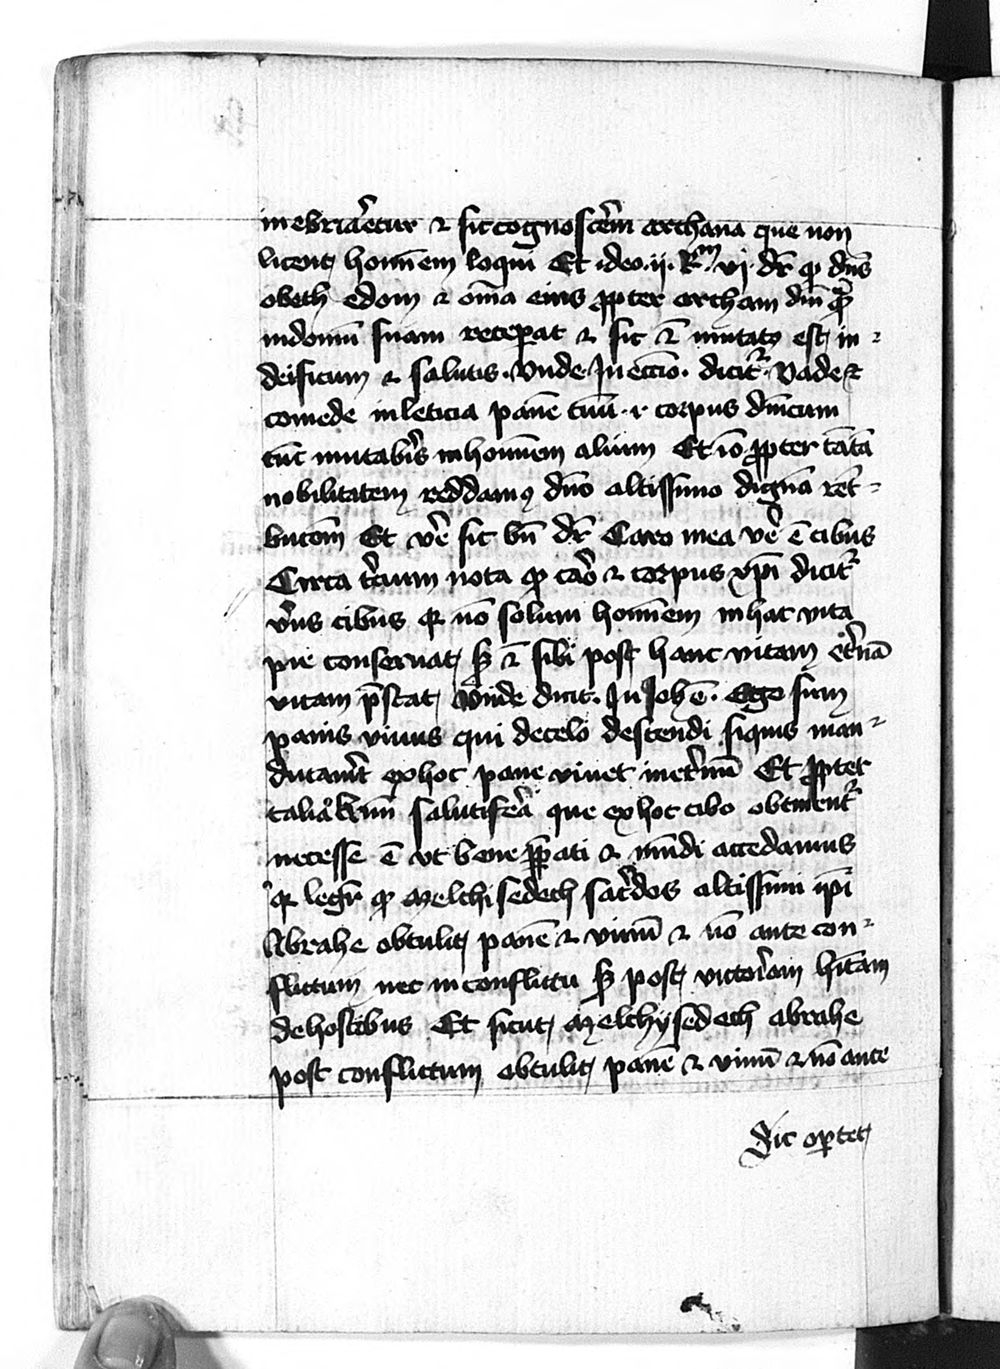 inebriaretur & sic cognosceret archana que non
licent hominem loqui Et ideo .ii. Rm vi dr̄ qp dn̄s
obeth edom & om̄ia eius propter archam dn̄i
in domum suam receperat & sic mutatus est in
deificum & salutis. Unde In eccīo. dicitr Vade &
comede in leticia panē tuū .i. corpus dn̄icum
tūc mutaberis in hominem alium Et iō propter tātā
nobilitatem reddamus dn̄o altissimo dignā ret
bucōm Et vere sic bn̄ dr̄ Caro mea vere ē cibus
Circa tercium nota qp caro & corpus xp̄i dicitr
verus cibus qr nō solum hominem in hac vita
pie conseruat sed sibi post hanc vitam eternā
vitam prestat Unde dicit. In Johē. Ego sum
panis viuus qui de celo descendi siquis man
ducauerit ex hoc pane viuet in eternū Et propter
talia salutifera que ex hoc cibo obtinentr
necesse ē vt bene preparati & mundi accedamus
qr legr qp Melchisedech sacerdos altissimi ipī
Abrahe obtulit panē & vinū & nō ante con
flictum nec in conflictu sed post victoriam hītam
de hostibus Et sicut Melchysedech abrahe
post conflictum obtulit panē & vinū & nō ante
Sic oportet